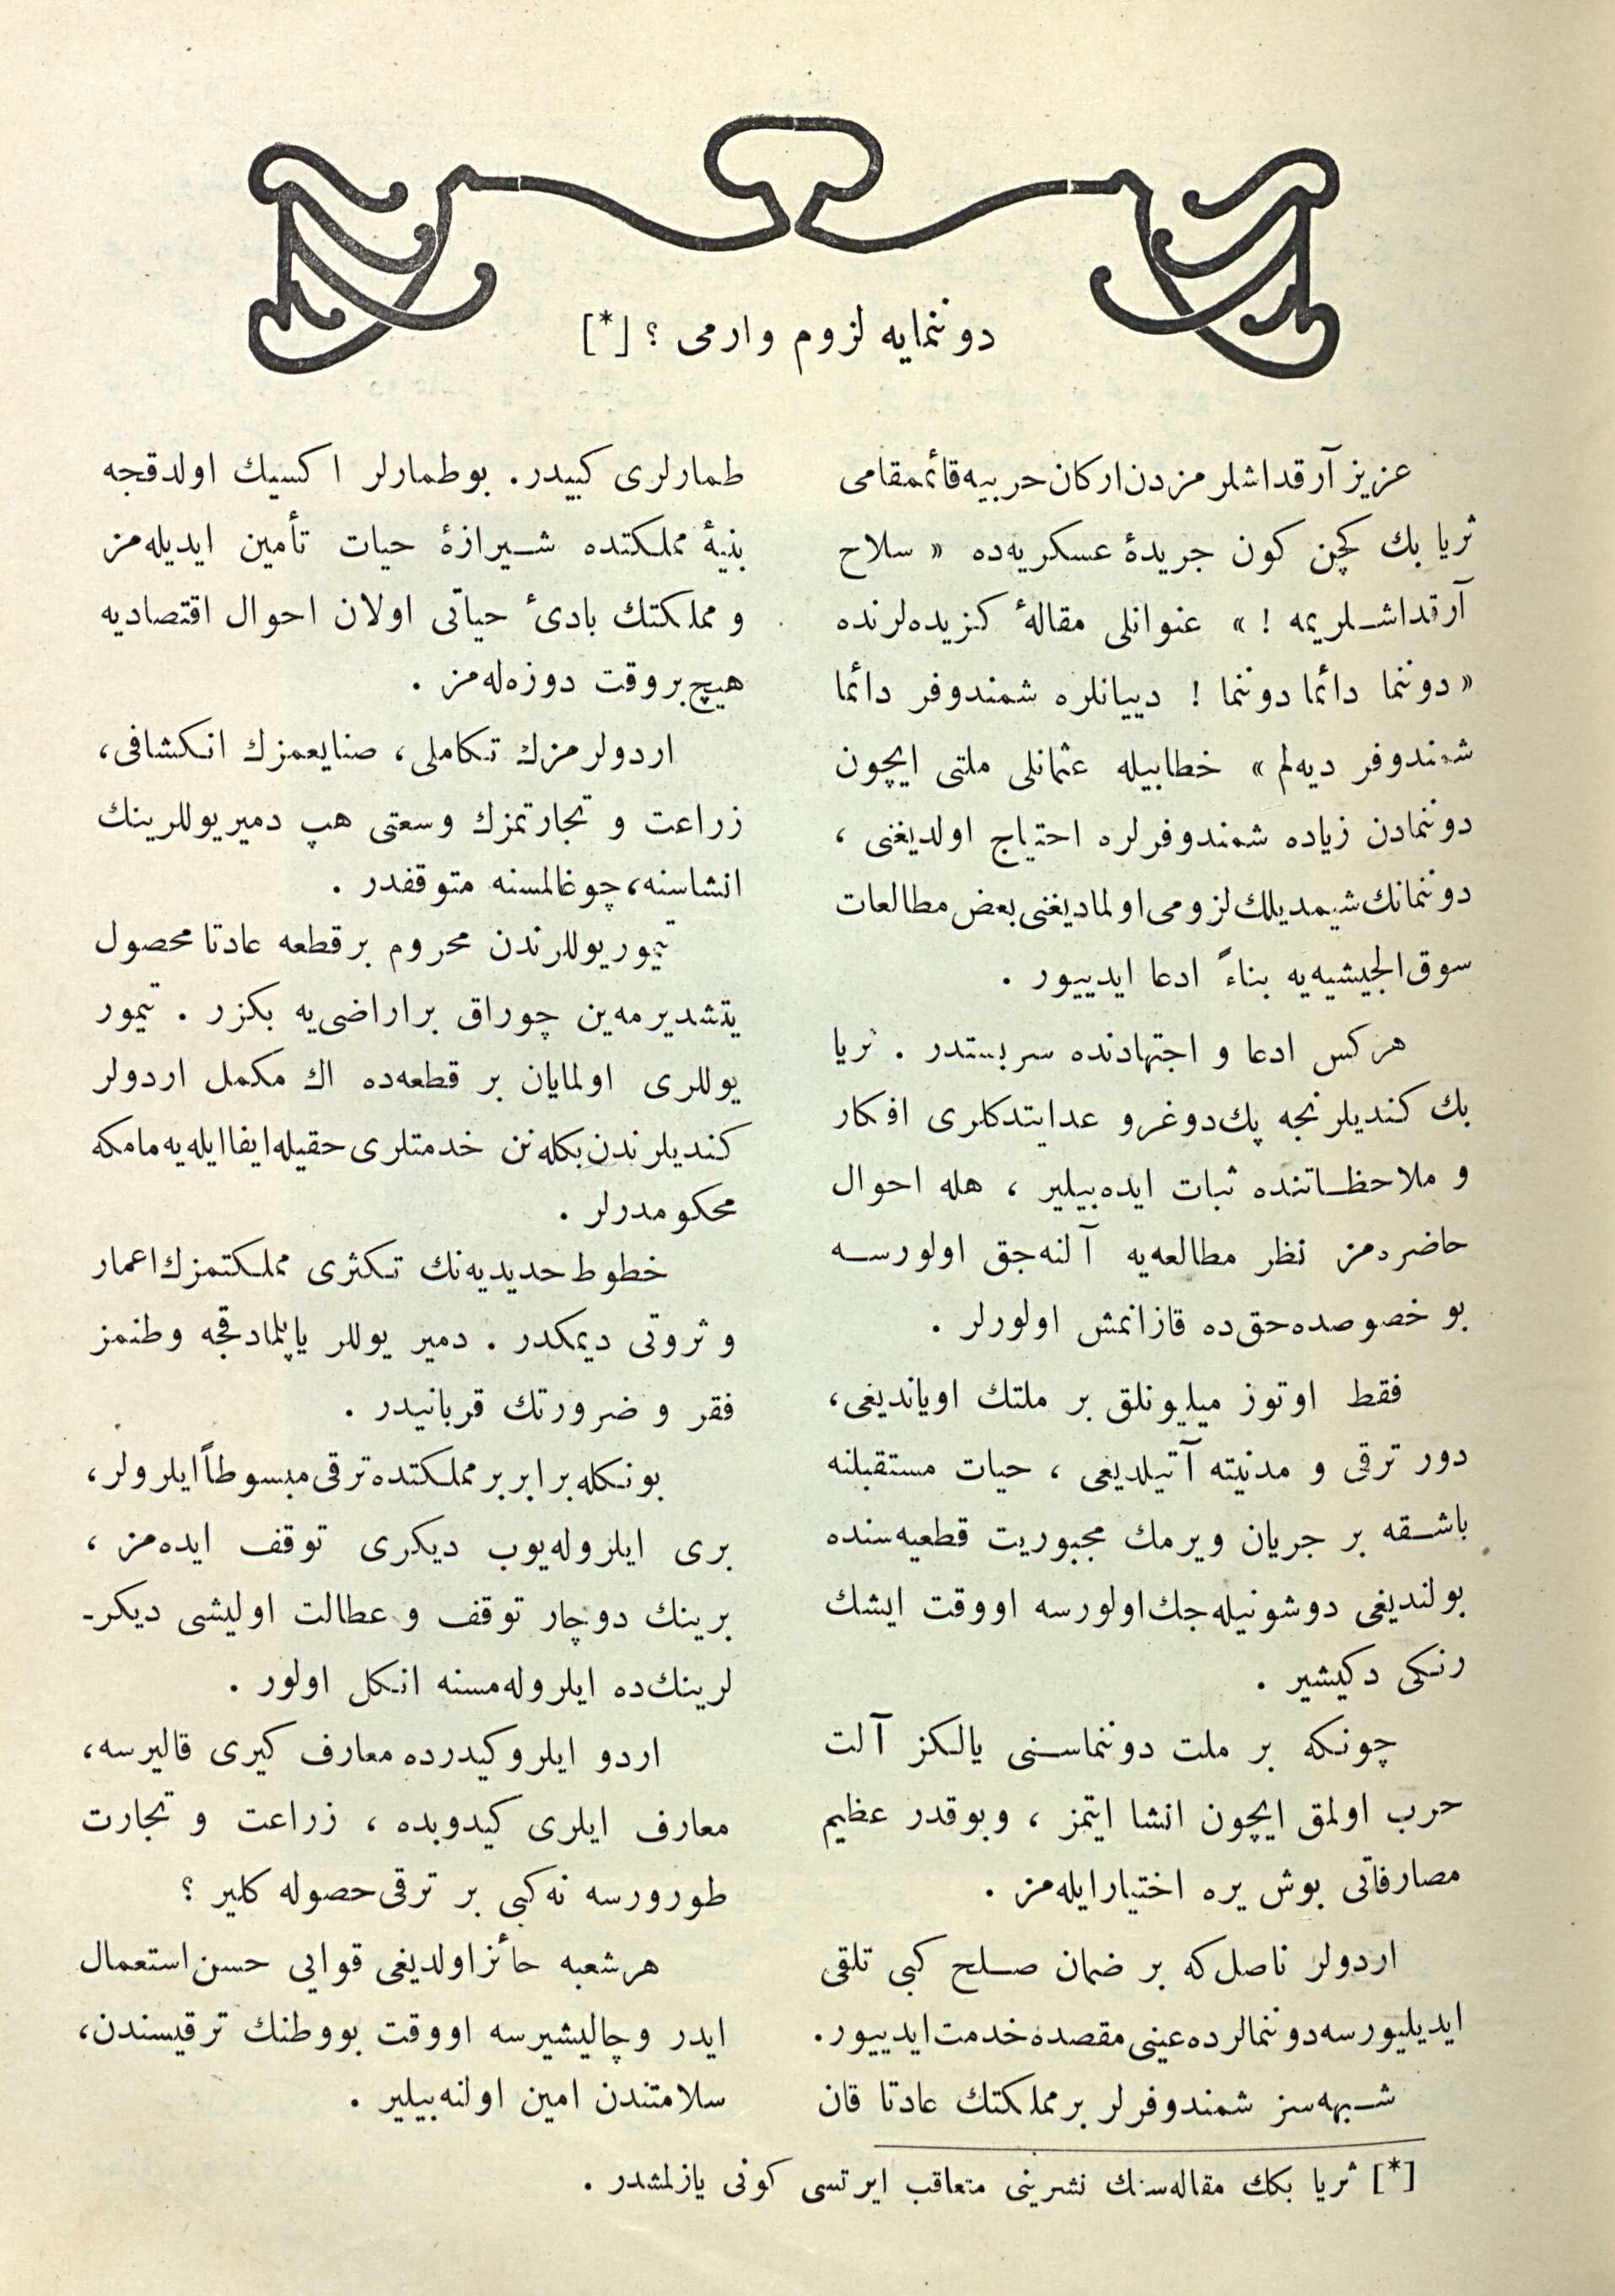 دوننمایه لزوم وارمی ؟ [*]
عزیز آرقداشلرمزدن اركان حربیه قائممقامی
ثریا بك كچن كون جریدهٔ عسكریه‌ده « سلاح
آرقداشلریمه ! » عنوانلی مقالهٔ كزیده‌لرنده
« دوننما دائما دوننما ! دییانلره شمندوفر دائما
شمندوفر دیه‌لم » خطابیله عثمانلی ملتی ایچون
دوننمادن زیاده شمندوفرلره احتیاج اولدیغنی ،
دوننمانك شیمدیلك لزومی اولمادیغنی بعض مطالعات
سوق‌الجیشیه‌یه بناءً ادعا ایدییور .
هركس ادعا و اجتهادنده سربستدر . ثریا
بك كندیلرنجه پك دوغرو عد ایتدكلری افكار
و ملاحظاتنده ثبات ایده‌بیلیر ، هله احوال
حاضره‌مز نظر مطالعه‌یه آلنه‌جق اولورسه
بو خصوصده حق‌ده قازانمش اولورلر .
فقط اوتوز میلیونلق بر ملتك اویاندیغی،
دور ترقی و مدنیته آتیلدیغی ، حیات مستقبلنه
باشقه بر جریان ویرمك مجبوریت قطعیه‌سنده
بولندیغی دوشونیله‌جك اولورسه اووقت ایشك
رنكی دكیشیر .
چونكه بر ملت دوننماسنی یالكز آلت
حرب اولمق ایچون انشا ایتمز ، وبوقدر عظیم
مصارفاتی بوش یره اختیار ایله‌مز .
اردولر ناصل‌كه بر ضمان صلح كبی تلقی
ایدیلیورسه دوننمالرده عینی مقصده خدمت ایدییور.
شبهه‌سز شمندوفرلر بر مملكتك عادتا قان
طمارلری كبیدر. بو طمارلر اكسیك اولدقجه
بنیهٔ مملكتده شیرازهٔ حیات تأمین ایدیله‌مز
و مملكتك بادئ حیاتی اولان احوال اقتصادیه
هیچ بر وقت دوزه‌له‌مز .
اردولرمزك تكاملی، صنایعمزك انكشافی،
زراعت و تجارتمزك وسعتی هپ دمیریوللرینك
انشاسنه، چوغالمسنه متوقفدر .
تیموریوللرندن محروم بر قطعه عادتا محصول
یتشدیرمه‌ین چوراق بر اراضی‌یه بكزر . تیمور
یوللری اولمایان بر قطعه‌ده اك مكمل اردولر
كندیلرندن بكله‌نن خدمتلری حقیله ایفا ایله‌یه‌مامكه
محكومدرلر .
خطوط حدیدیه‌نك تكثری مملكتمزك اعمار
و ثروتی دیمكدر . دمیر یوللر یاپلمادقجه وطنمز
فقر و ضرورتك قربانیدر .
بونكله برابر بر مملكتده ترقی مبسوطاً ایلرولر،
بری ایلروله‌یوب دیكری توقف ایده‌مز ،
برینك دوچار توقف و عطالت اولیشی دیكر-
لرینك‌ده ایلروله‌مسنه انكل اولور .
اردو ایلرو كیدرده معارف كیری قالیرسه،
معارف ایلری كیدوبده ، زراعت و تجارت
طورورسه نه كبی بر ترقی حصوله كلیر ؟
هر شعبه حائز اولدیغی قوایی حسن استعمال
ایدر وچالیشیرسه اووقت بووطنك ترقیسندن،
سلامتندن امین اولنه‌بیلیر .
[*] ثریا بكك مقاله‌سنك نشرینی متعاقب ایرتسی كونی یازلمشدر .